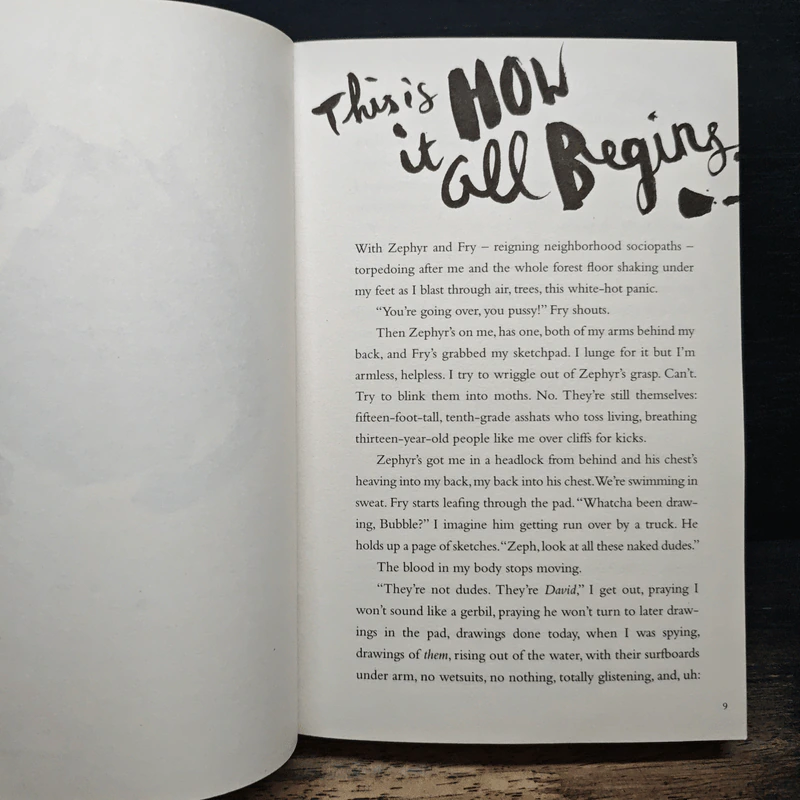 This is HOW
it all Begins.
With Zephyr and Fry – reigning neighborhood sociopaths –
torpedoing after me and the whole forest floor shaking under
my feet as I blast through air, trees, this white-hot panic.
“You’re going over, you pussy!” Fry shouts.
Then Zephyr’s on me, has one, both of my arms behind my
back, and Fry’s grabbed my sketchpad. I lunge for it but I’m
armless, helpless. I try to wriggle out of Zephyr’s grasp. Can’t.
Try to blink them into moths. No. They’re still themselves:
fifteen-foot-tall, tenth-grade asshats who toss living, breathing
thirteen-year-old people like me over cliffs for kicks.
Zephyr’s got me in a headlock from behind and his chest’s
heaving into my back, my back into his chest. We’re swimming in
sweat. Fry starts leafing through the pad. “Whatcha been draw-
ing, Bubble?” I imagine him getting run over by a truck. He
holds up a page of sketches. “Zeph, look at all these naked dudes.”
The blood in my body stops moving.
“They’re not dudes. They’re David,” I get out, praying I
won’t sound like a gerbil, praying he won’t turn to later draw-
ings in the pad, drawings done today, when I was spying,
drawings of them, rising out of the water, with their surfboards
under arm, no wetsuits, no nothing, totally glistening, and, uh:
9